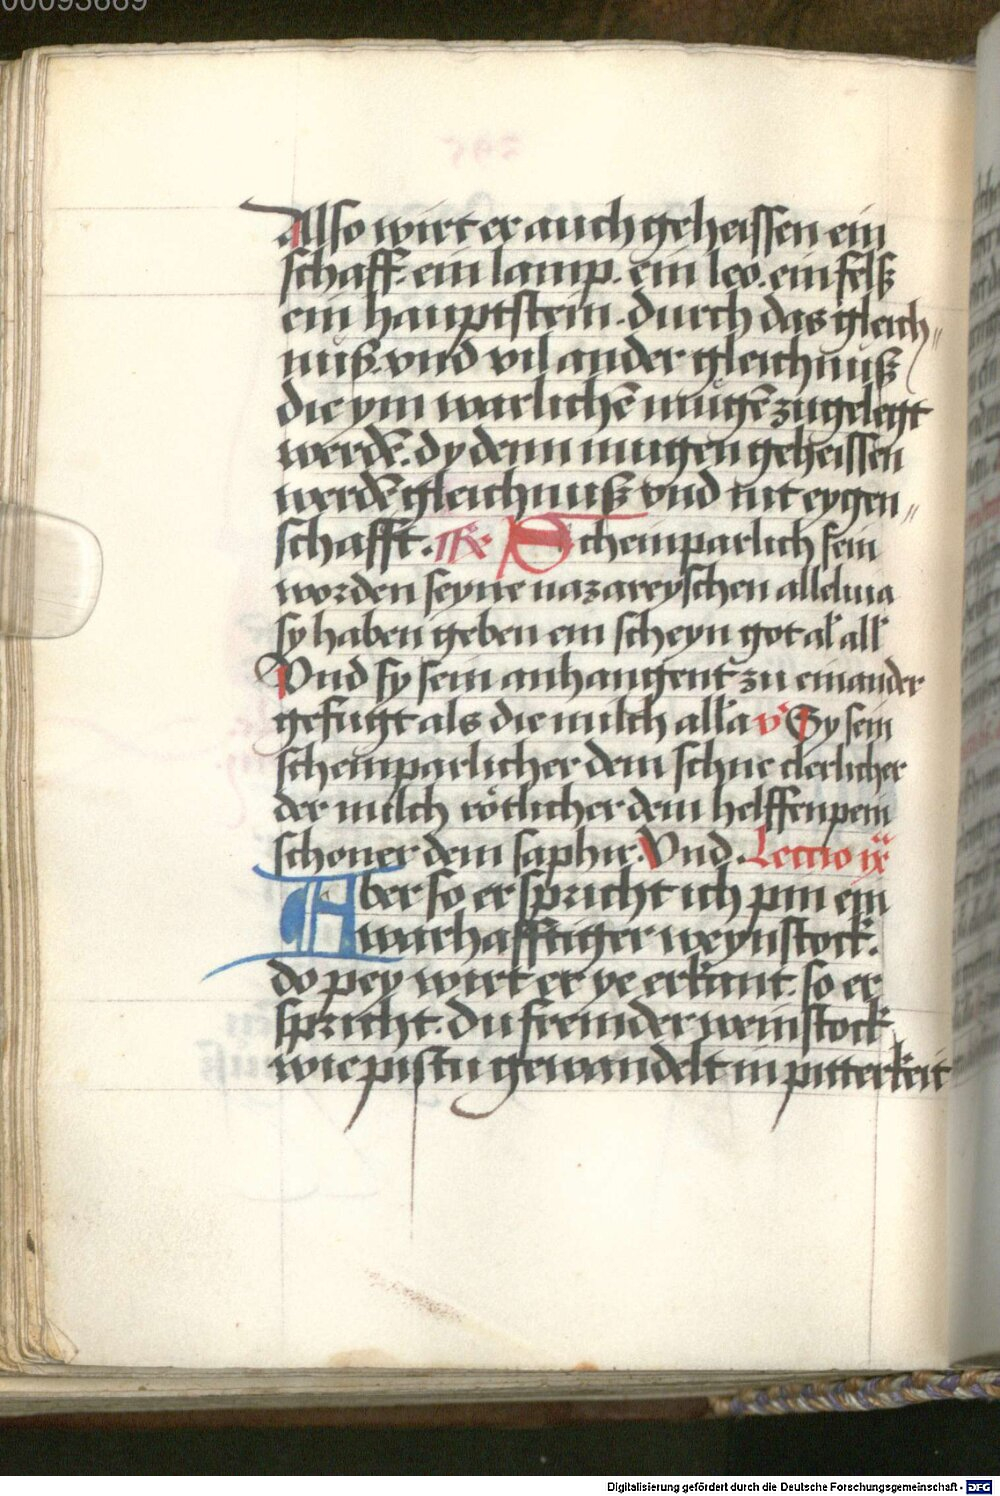 00093669
Also wirt er auch geheissen ein
schaff. ein lamp. ein leo. ein felß
ein hauptstein. durch das gleich„
nuß. vnd vil ander gleichnuß
die ym warlichē mugē zugelegt
werdē. dy denn mugen geheissen
werdē gleichnuß vnd nit eygen„
schafft. Scheinparlich sein
worden seyne nazareyschen alleluia
sy haben geben ein scheyn got al' all'
Vnd sy sein anhangent zu einander
gefugt als die milch all'a v' Sy sein
scheinparlicher dem schne clerlicher
der milch rötlicher dem helffenpein
schoner dem saphir. Vnd. Lectio ix
Aber so er spricht ich pin ein
warhafftiger weynstock.
do pey wirt er ye erkant. so er
spricht. du fremder weinstock
wie pistu gewandelt in pitterkeit
Digitalisierung gefördert durch die Deutsche Forschungsgemeinschaft - DFG